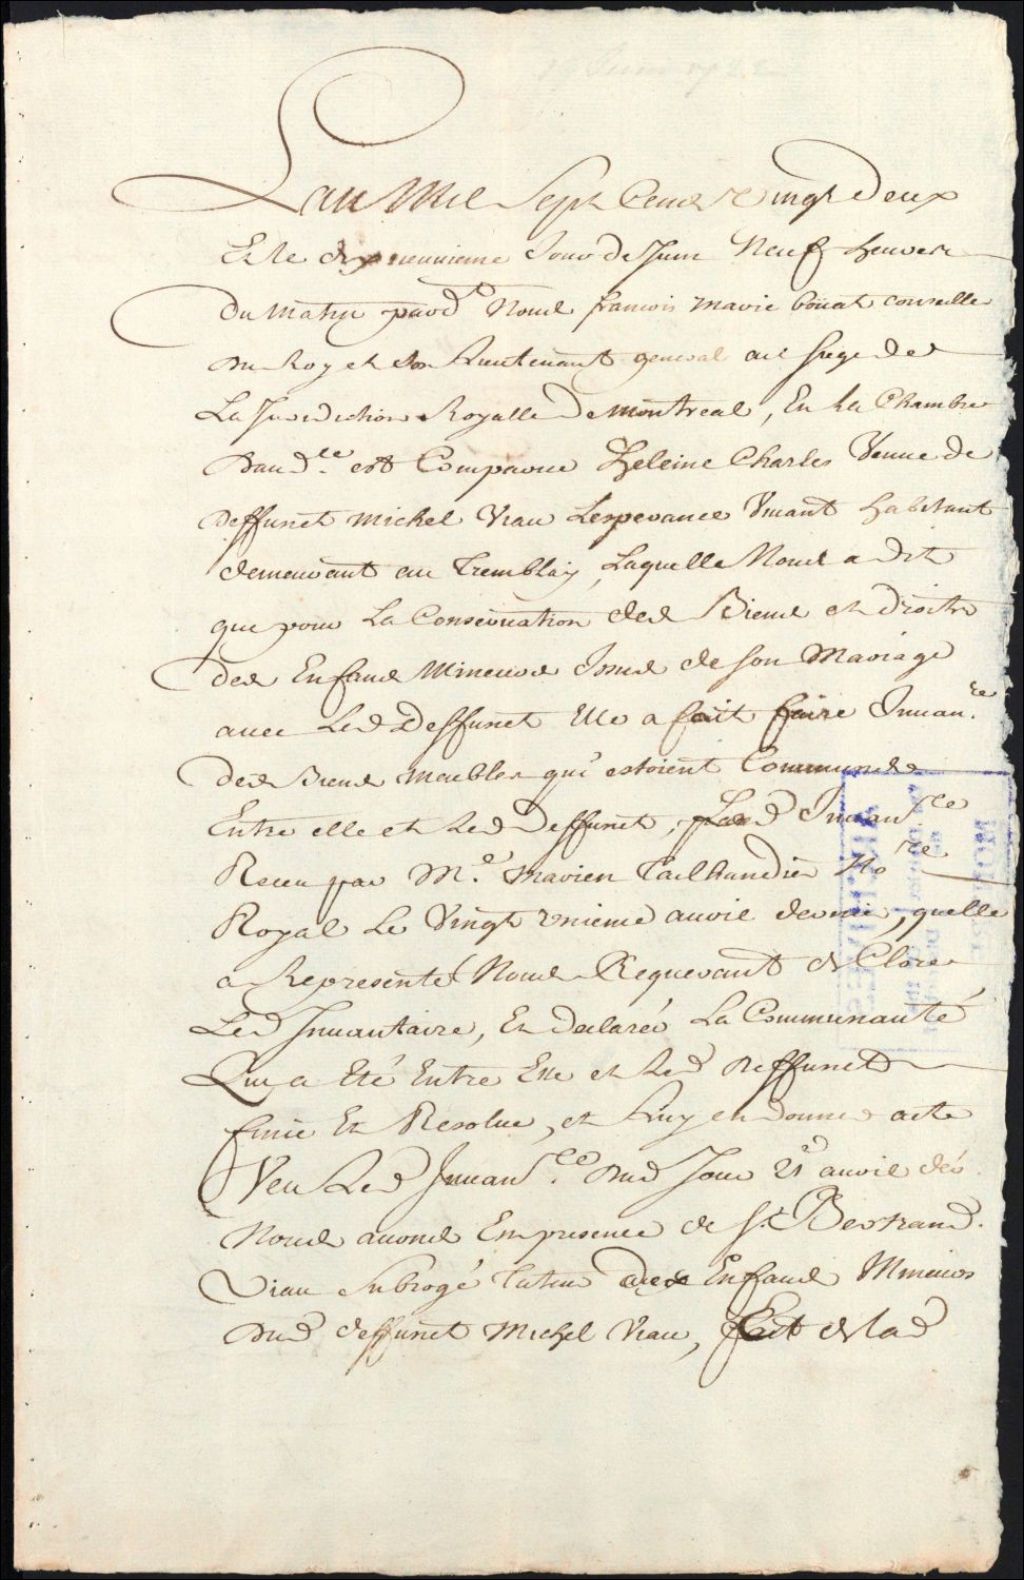 Lan Mil Sept Cent Vingt Deux
Et le dixneuvieme Jour de Juin Neuf heures
Du Matin pard.t Nous francois marie boüat conseiller
Du Roy et Son Lieutenant general au siege de
La Jurisdiction Royalle De montreal, En La Chambre
Daud.ce est Comparue Heleine Charles Veuve de
deffunct michel Viau Lesperance Vivant habitant
demeurant au Tremblay, Laquelle Nous a dit
que pour La Conservation des Biens et droits
des Enfans Mineurs Issus de son Mariage
avec Led Deffunct Elle a fait faire Inuan.re
des Biens meubles qui estoient Communs
Entre elle et Led Deffunct, Led Inuan.re
Receu par M.e marien Tailhandier No.re
Royal Le Vingt Vnieme avril dernier, quelle
a Representé Nous Requerant de Clore
Led Inuantaire, Et declarer La Communauté
Qui a Eté Entre Elle et Led Deffunct
finie Et Resolue, et Luy en donner acte
Veu Led Inuan.re dud Jour 21 avril der
Nous avons En presence de S.r Bertrand
Viau Subrogé Tuteur des Enfans Mineurs
Dud deffunct Michel Viau, fait de lad